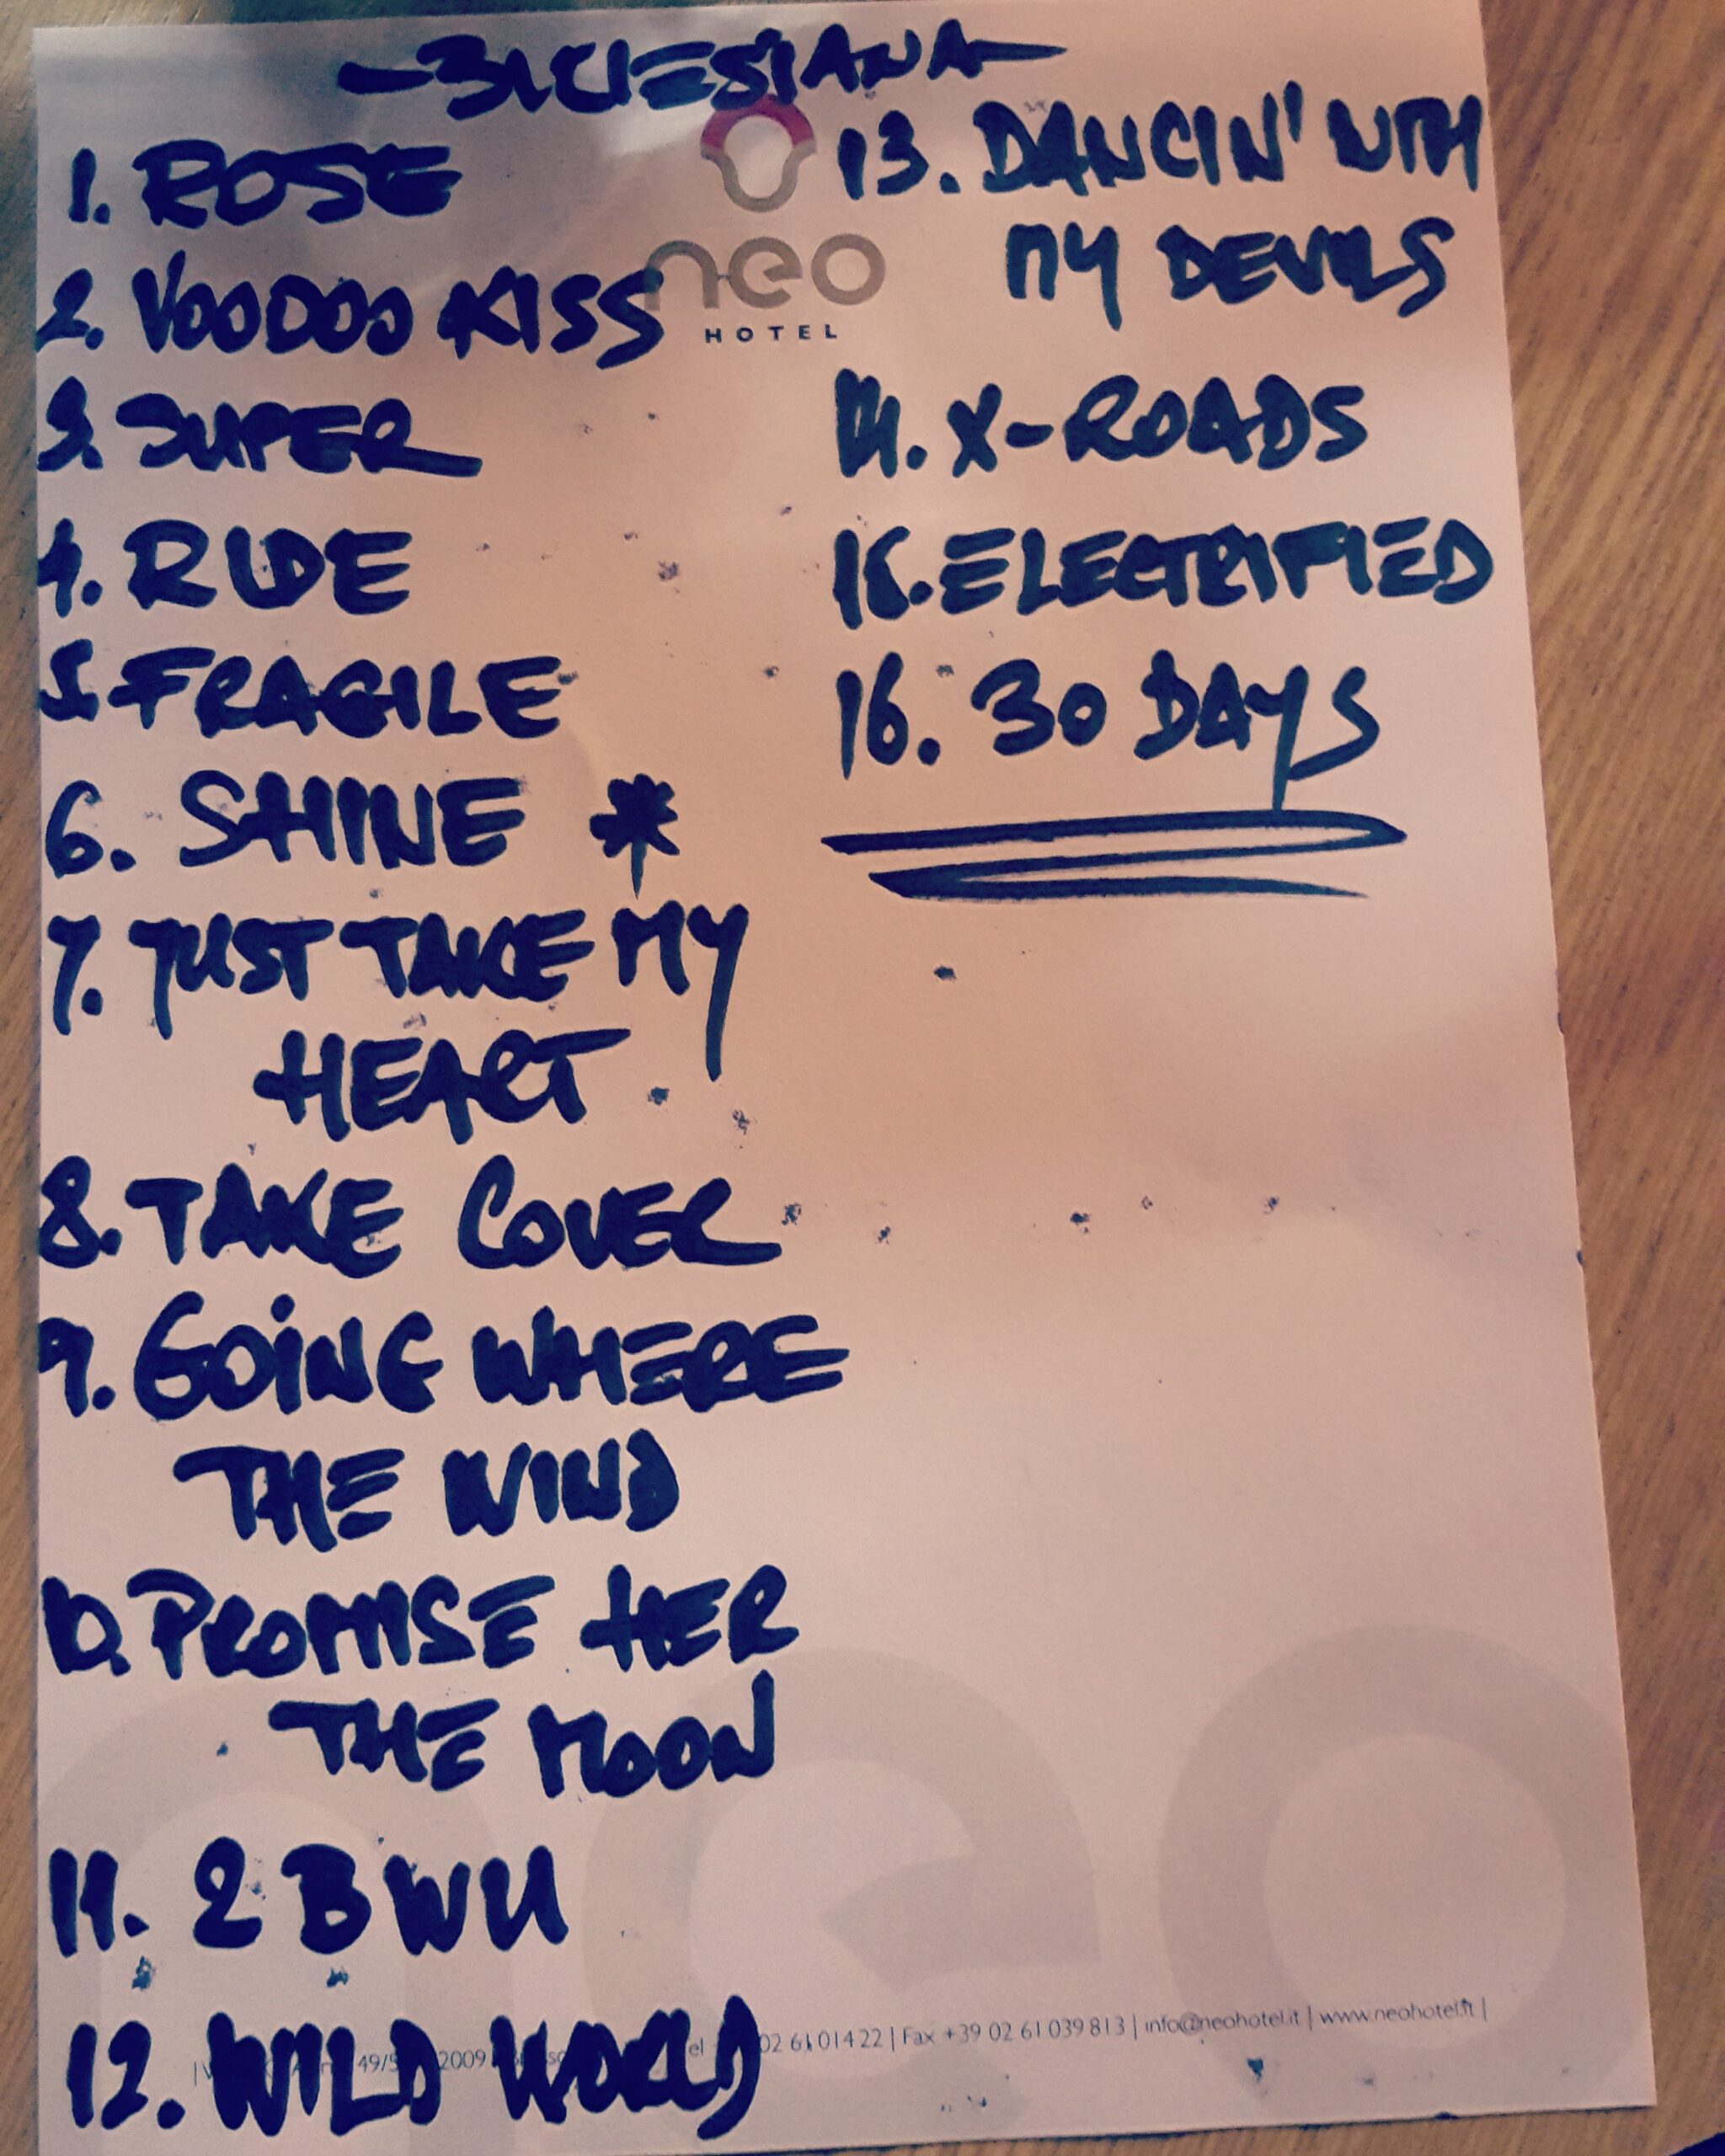 1. ROSE
2. VOODOO KISS
3. SUPER
4. RIDE
5. FRAGILE
6. SHINE *
7. JUST TAKE MY
HEART
8. TAKE COVER
9. GOING WHERE
THE WIND
10. PROMISE HER
THE MOON
11. 2 B W U
12. WILD WORLD
neo
HOTEL
13. DANCIN' WITH
MY DEVILS
14. X-ROADS
15. ELECTRIFIED
16. 30 DAYS
neo
02 6101422 | Fax +39 02 61039813 | info@neohotel.it | www.neohotel.it |